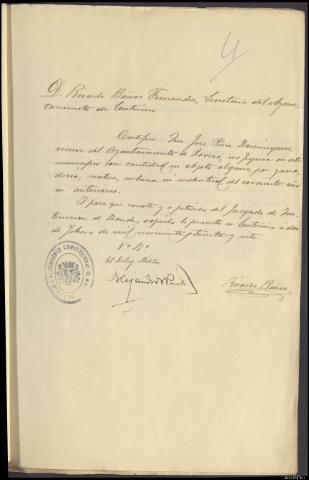 4
D. Ricardo Barros Fernandez, Secretario del Ayun-
tamiento de
Certifico: Que José Piña Dominguez,
vecino del Ayuntamiento de no figura en este
municipio con cantidad ni objeto alguno por gana-
deria, rustica, urbana ni industrial del corriente año
ni anteriores.
I para que conste y a petición del Juzgado de Ins-
truccion de expido la presente en a dos
de Febrero de mil novecientos treinta y siete.
Vº Bº
El
Alejandro
Ricardo Barros
AYUNTAMIENTO CONSTITUCIONAL DE